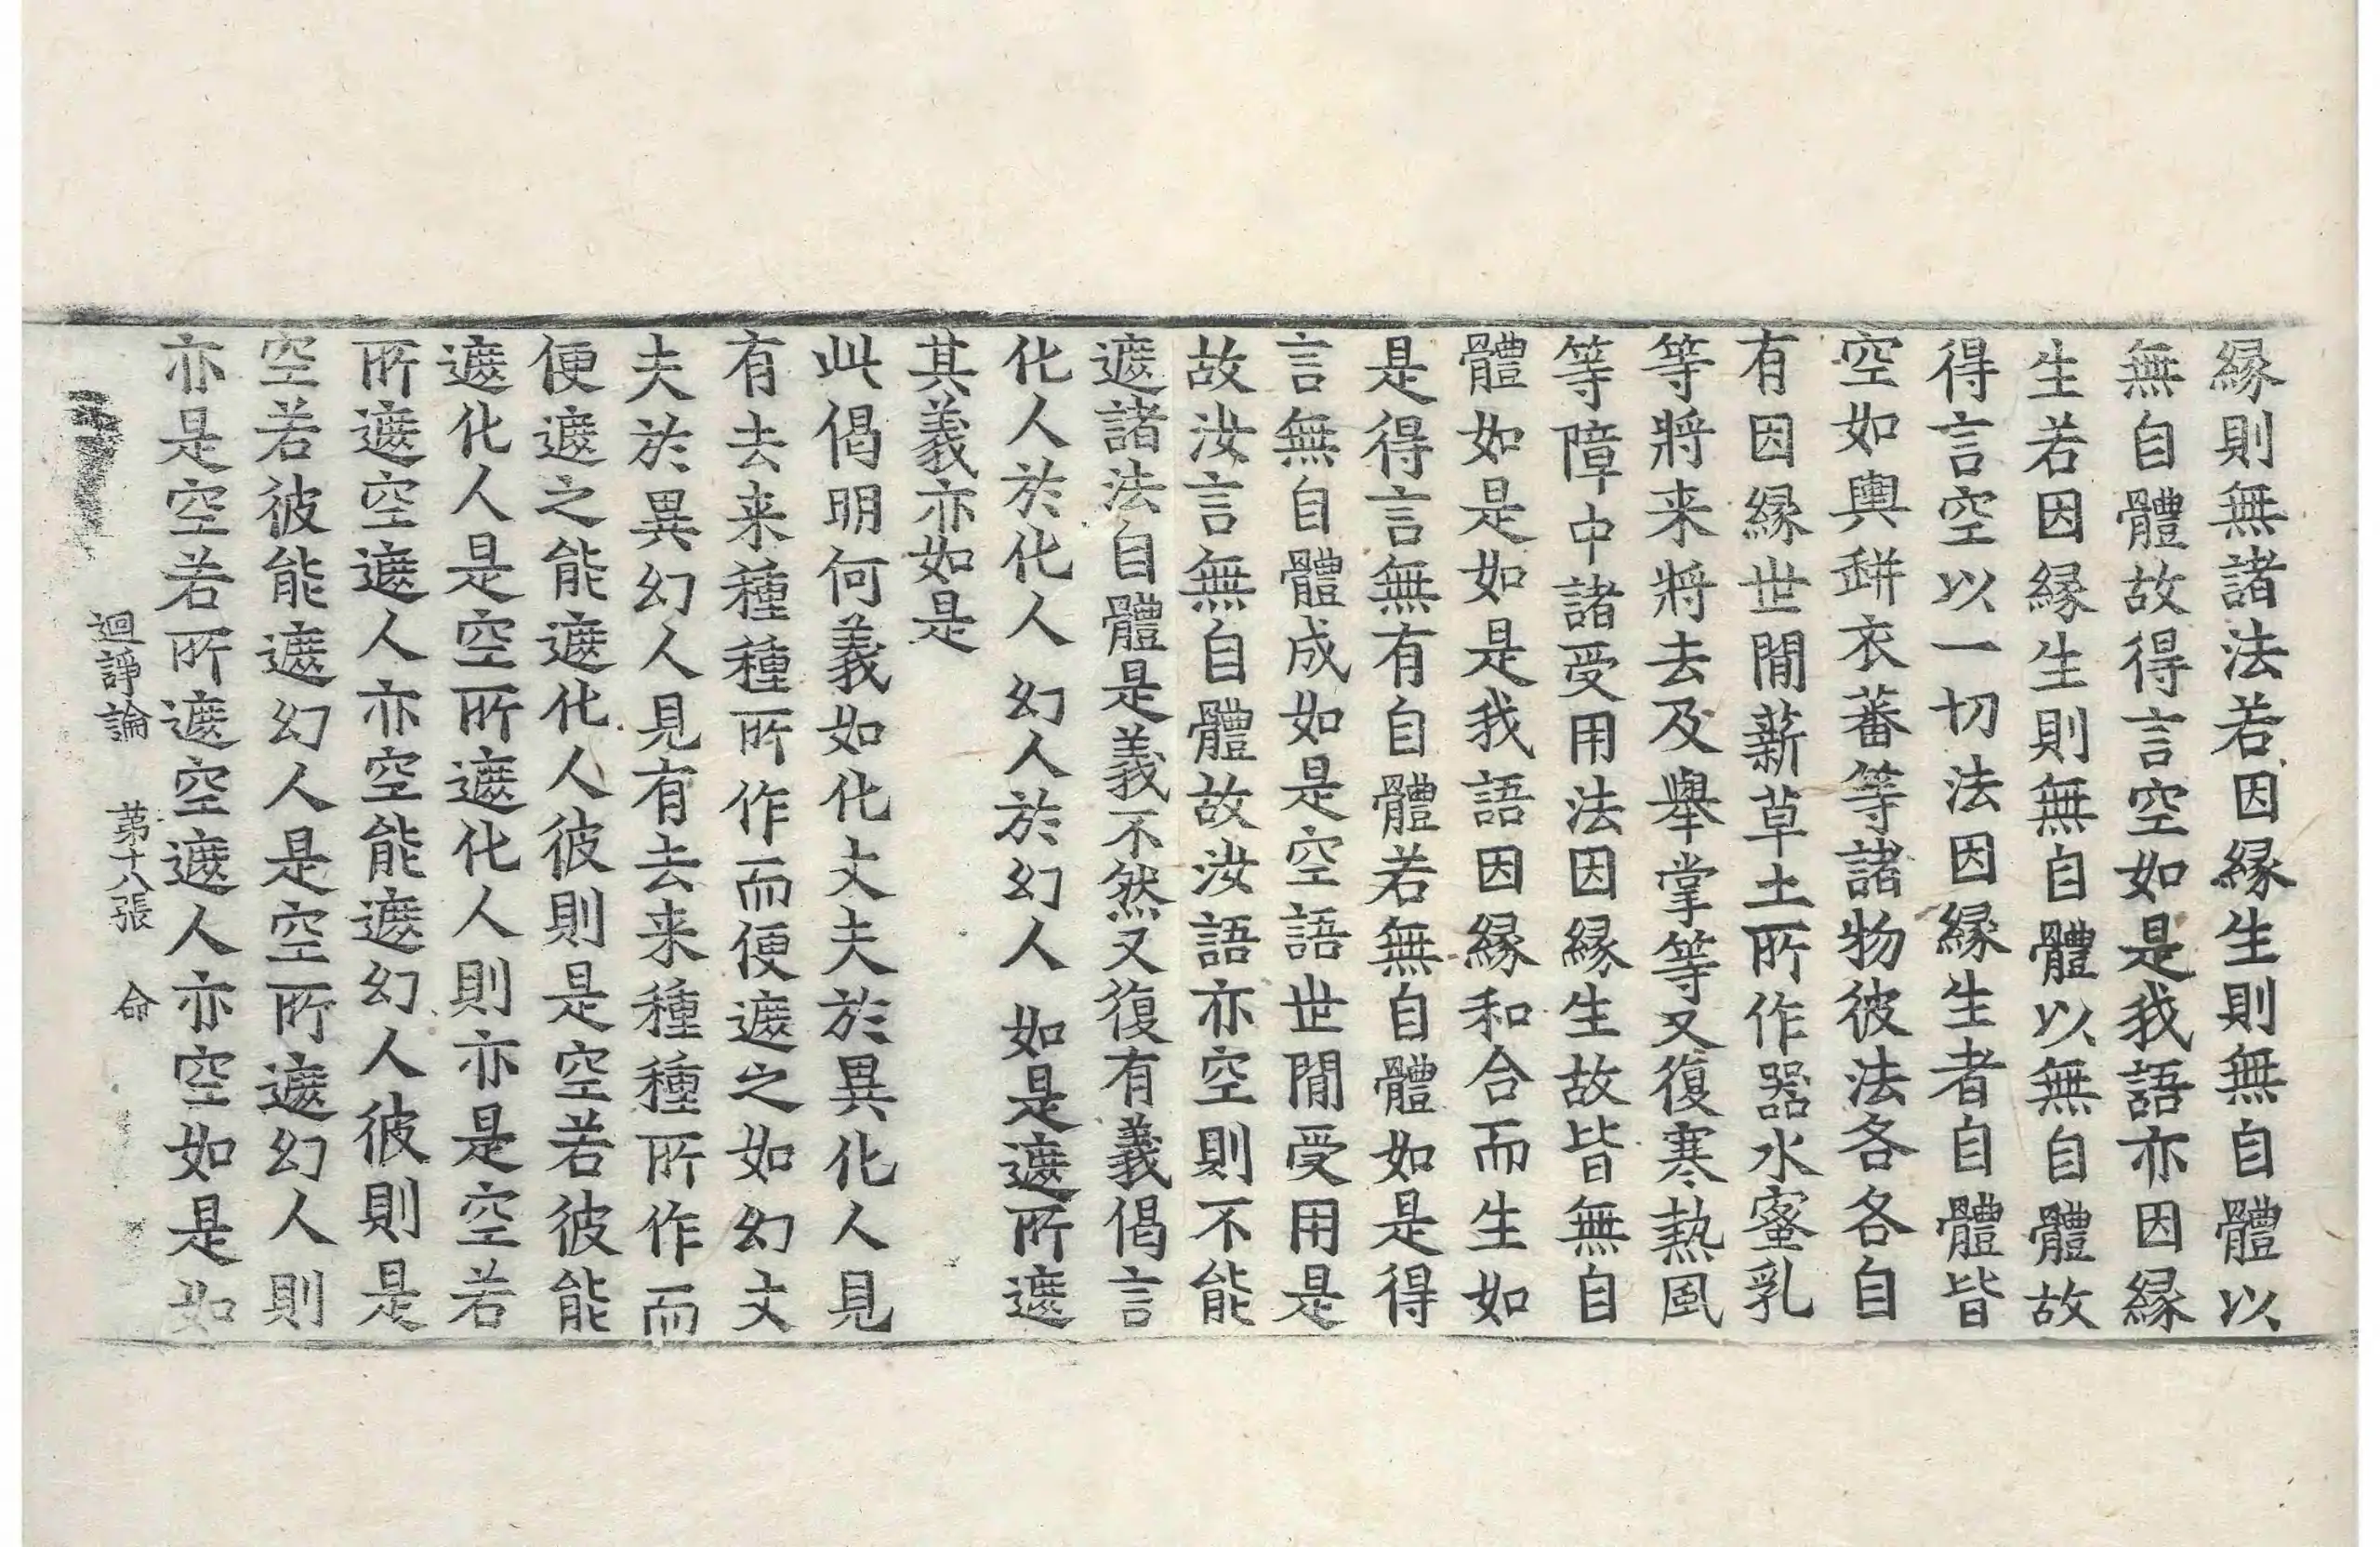 縁則無諸法若因縁生則無自體以
無自體故得言空如是我語亦因縁
生若因縁生則無自體以無自體故
得言空以一切法因縁生者自體皆
空如輿缾衣蕃等諸物彼法各各自
有因縁世閒薪草土所作器水蜜乳
等將来將去及舉掌等又復寒熱風
等障中諸受用法因縁生故皆無自
體如是如是我語因縁和合而生如
是得言無有自體若無自體如是得
言無自體成如是空語世閒受用是
故汝言無自體故汝語亦空則不能
遮諸法自體是義不然又復有義偈言
化人於化人 幻人於幻人 如是遮所遮
其義亦如是
此偈明何義如化丈夫於異化人見
有去来種種所作而便遮之如幻丈
夫於異幻人見有去来種種所作而
便遮之能遮化人彼則是空若彼能
遮化人是空所遮化人則亦是空若
所遮空遮人亦空能遮幻人彼則是
空若彼能遮幻人是空所遮幻人則
亦是空若所遮空遮人亦空如是如
迴諍論 苐十八張 命